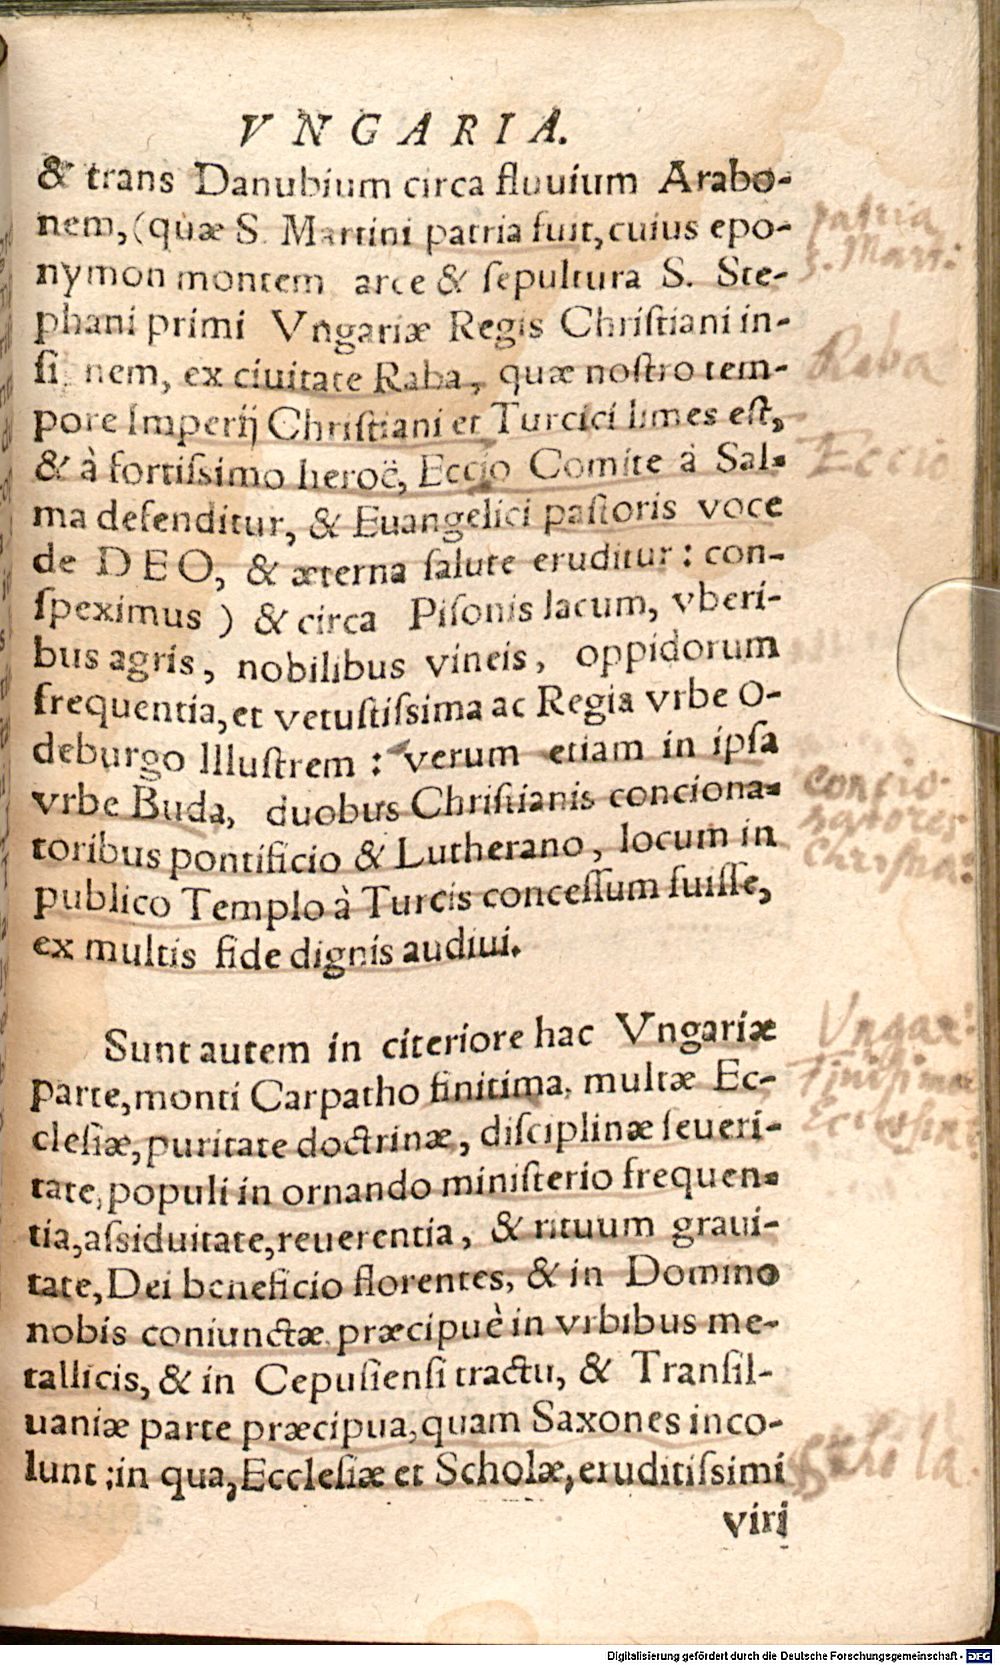 VNGARIA.
& trans Danubium circa fluuium Arabo-
nem, (quæ S. Martini patria fuit, cuius epo-
nymon montem arce & ſepultura S. Ste-
phani primi Vngariæ Regis Chriſtiani in-
ſignem, ex ciuitate Raba, quæ noſtro tem-
pore Imperij Chriſtiani et Turcici limes eſt,
& à fortiſsimo heroë, Eccio Comite à Sal-
ma defenditur, & Euangelici paſtoris voce
de DEO, & æterna ſalute eruditur: con-
ſpeximus) & circa Piſonis lacum, vberi-
bus agris, nobilibus vineis, oppidorum
frequentia, et vetuſtiſsima ac Regia vrbe O-
deburgo Illuſtrem: verum etiam in ipſa
vrbe Buda, duobus Chriſtianis conciona-
toribus pontificio & Lutherano, locum in
publico Templo à Turcis conceſſum fuiſſe,
ex multis fide dignis audiui.
Sunt autem in citeriore hac Vngariæ
parte, monti Carpatho finitima, multæ Ec-
cleſiæ, puritate doctrinæ, diſciplinæ ſeueri-
tate, populi in ornando miniſterio frequen-
tia, aſsiduitate, reuerentia, & rituum graui-
tate, Dei beneficio florentes, & in Domino
nobis coniunctæ præcipuè in vrbibus me-
tallicis, & in Cepuſienſi tractu, & Tranſil-
uaniæ parte præcipua, quam Saxones inco-
lunt; in qua, Eccleſiæ et Scholæ, eruditiſsimi
viri
patria
S. Mart:
Raba
Eccio
concio-
natores
Christia:
Vngar:
Schola.
Digitalisierung gefördert durch die Deutsche Forschungsgemeinschaft - DFG